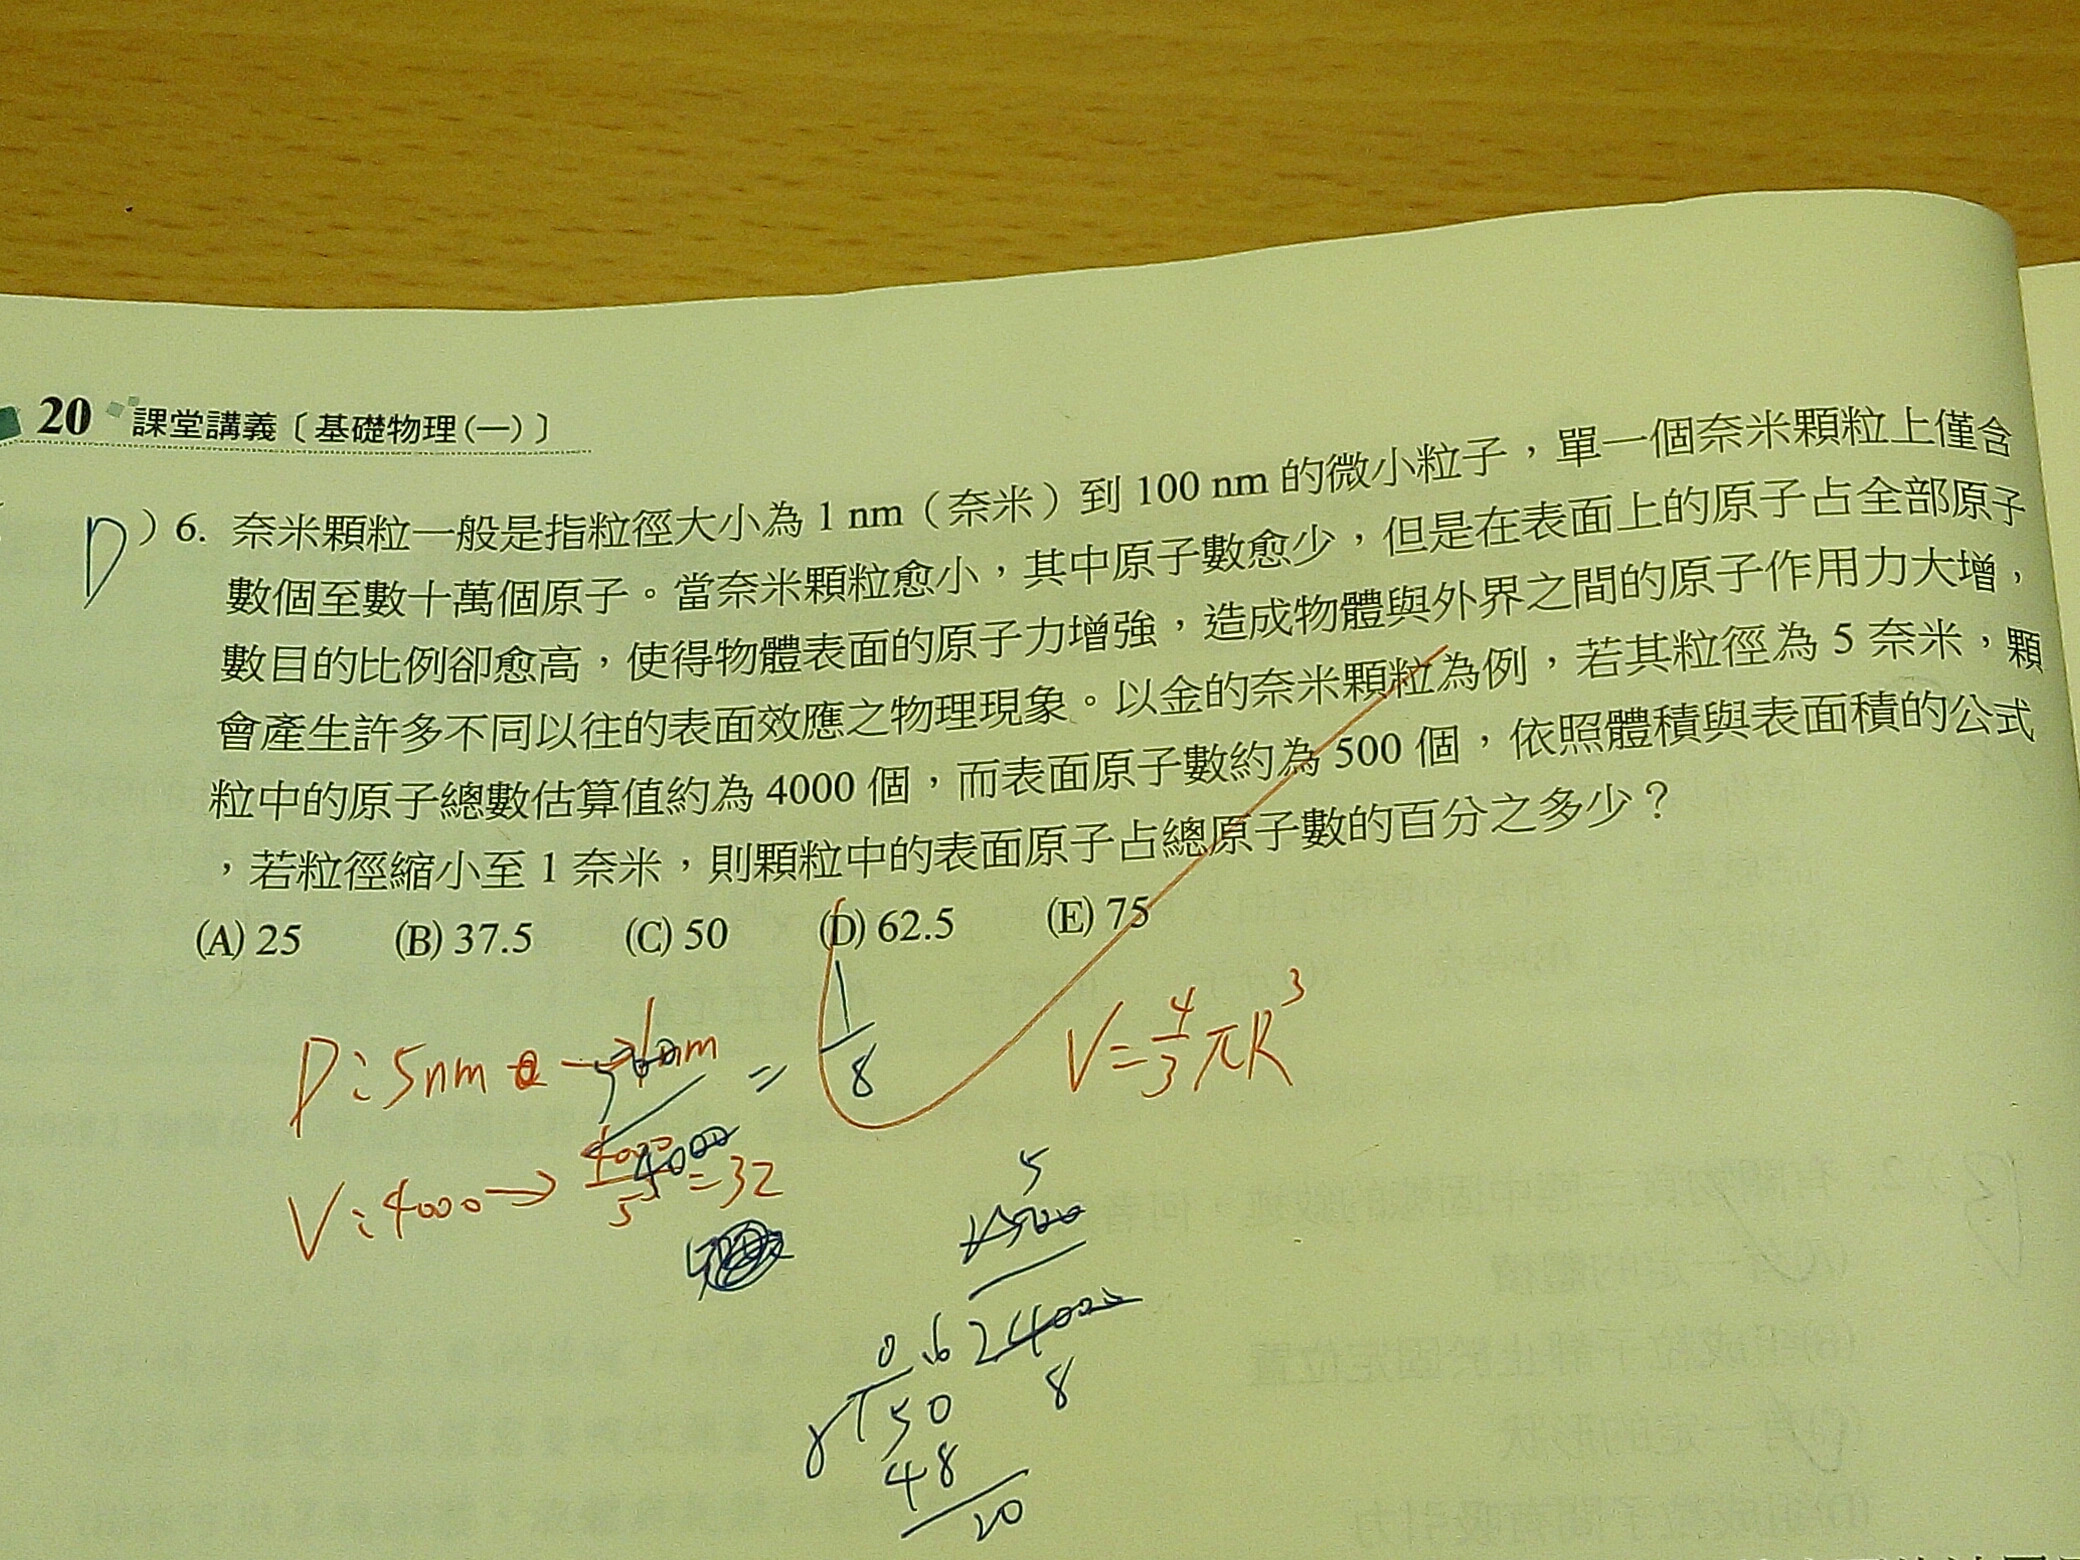 20 課堂講義〔基礎物理(一)〕
D )6. 奈米顆粒一般是指粒徑大小為 1 nm（奈米）到 100 nm 的微小粒子，單一個奈米顆粒上僅含
數個至數十萬個原子。當奈米顆粒愈小，其中原子數愈少，但是在表面上的原子占全部原子
數目的比例卻愈高，使得物體表面的原子力增強，造成物體與外界之間的原子作用力大增，
會產生許多不同以往的表面效應之物理現象。以金的奈米顆粒為例，若其粒徑為 5 奈米，顆
粒中的原子總數估算值約為 4000 個，而表面原子數約為 500 個，依照體積與表面積的公式
，若粒徑縮小至 1 奈米，則顆粒中的表面原子占總原子數的百分之多少？
(A) 25 (B) 37.5 (C) 50 (D) 62.5 (E) 75
D: 5nm → 1nm
= 1/8
V=4/3 πR³
V: 4000 → 4000/5³ = 32
5
8
0.62
8 50
48
20